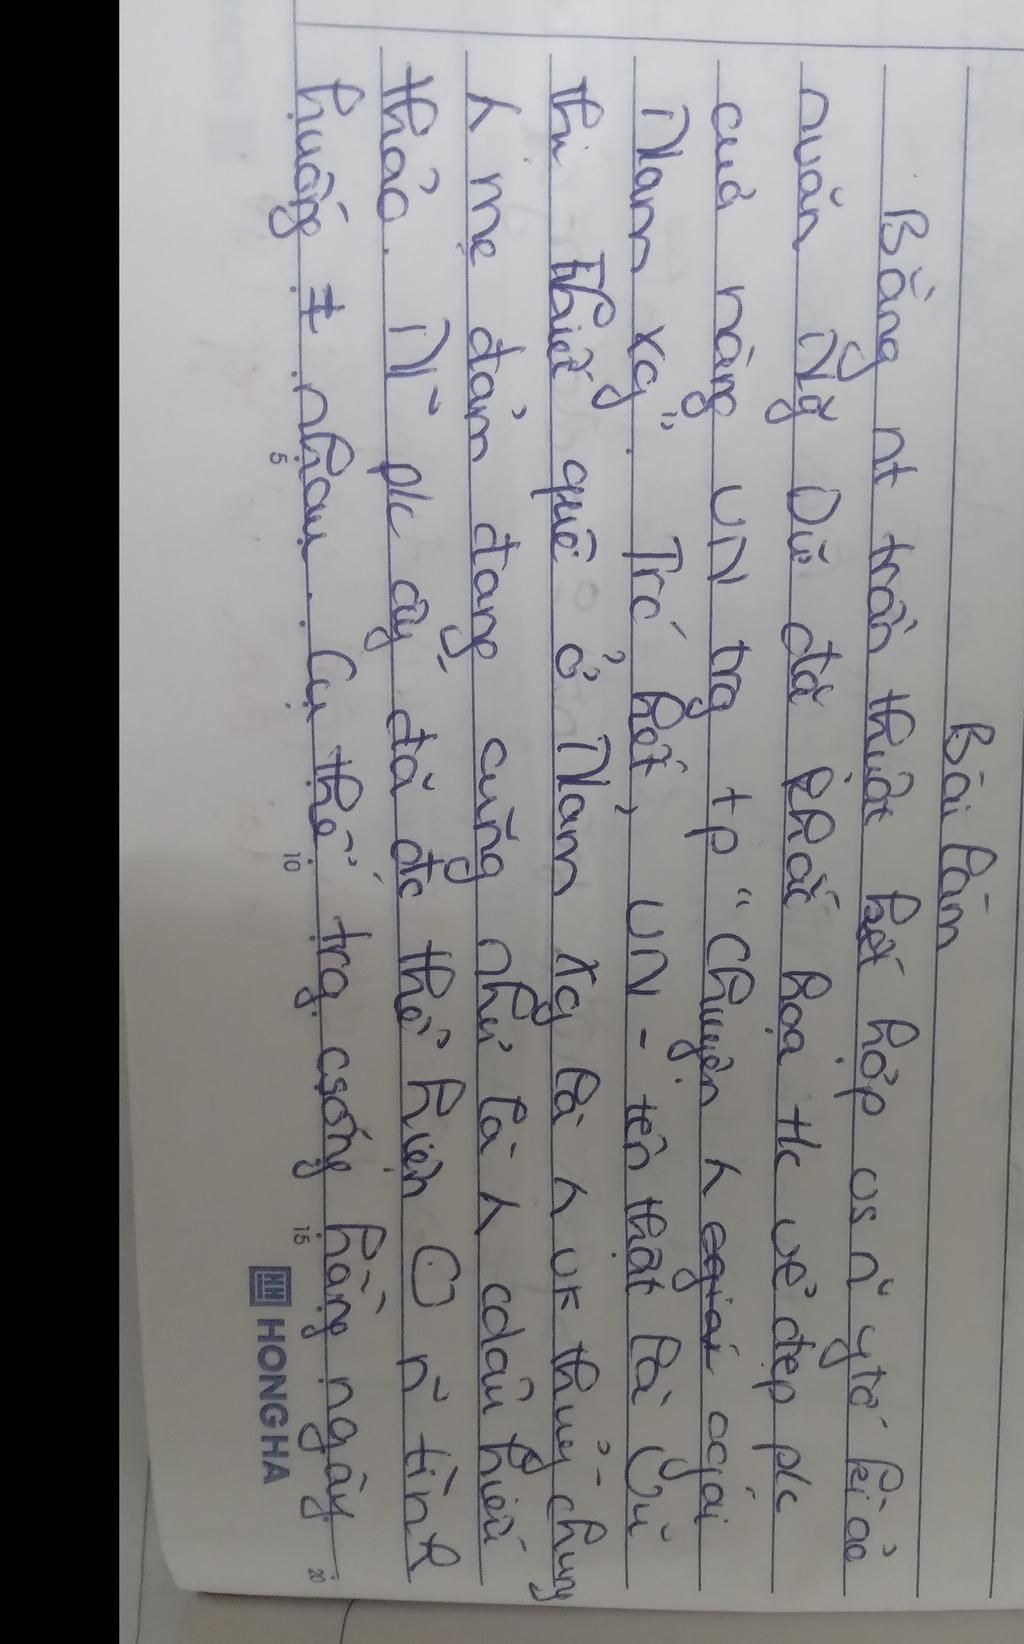 Bài làm
Bằng nt trần thuật kết hợp vs n~ ytố kì ảo
nvăn Ng~ Dữ đã khắc hoạ th vẻ đẹp p/c
của nàng VN trg tp "Chuyện n cgái
Nam Xg". Trc' hết, VN - tên thật là Vũ
thị Thiết quê ở Nam Xg là 1 vk thủy chung
1 mẹ đảm đang cũng như là 1 cdâu hiếu
thảo. N~ p/c ấy đã đc thể hiện O n~ tình
huống ≠ nhau. Cụ thể trg csống hằng ngày
5 10 15 20
HONG HA